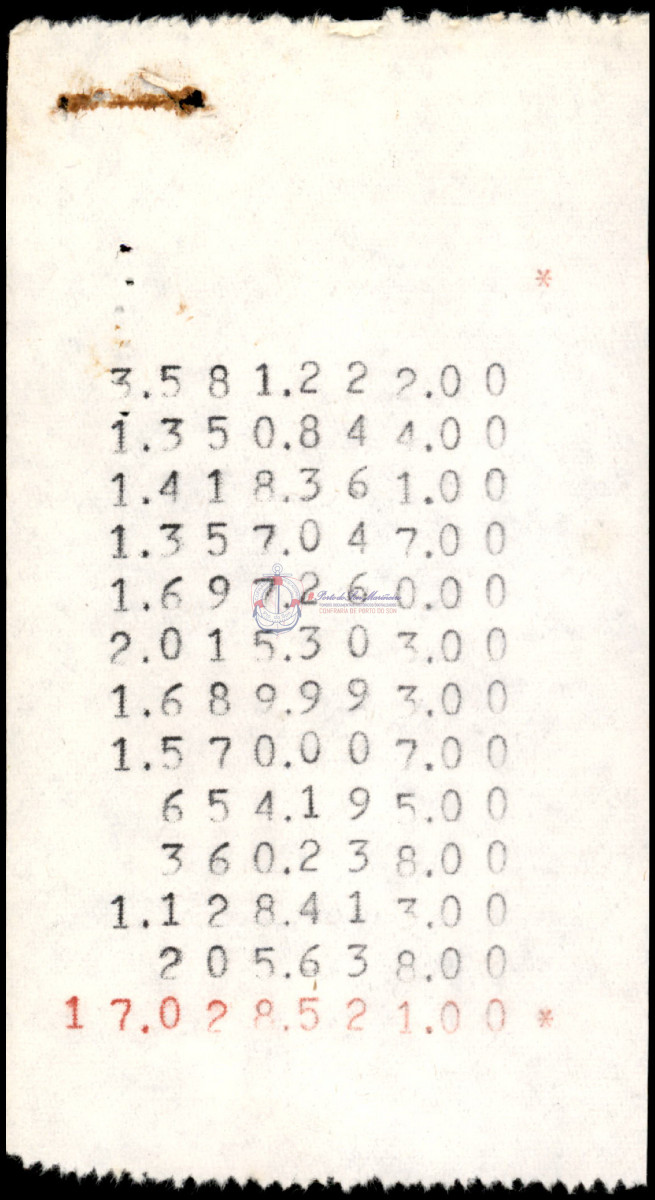 *
3.581.222.00
1.350.844.00
1.418.361.00
1.357.047.00
1.697.260.00
Porto do Son Mariñeiro
CONFRARIA DE PORTO DO SON
2.015.303.00
1.689.993.00
1.570.007.00
654.195.00
360.238.00
1.128.413.00
205.638.00
17.028.521.00 *